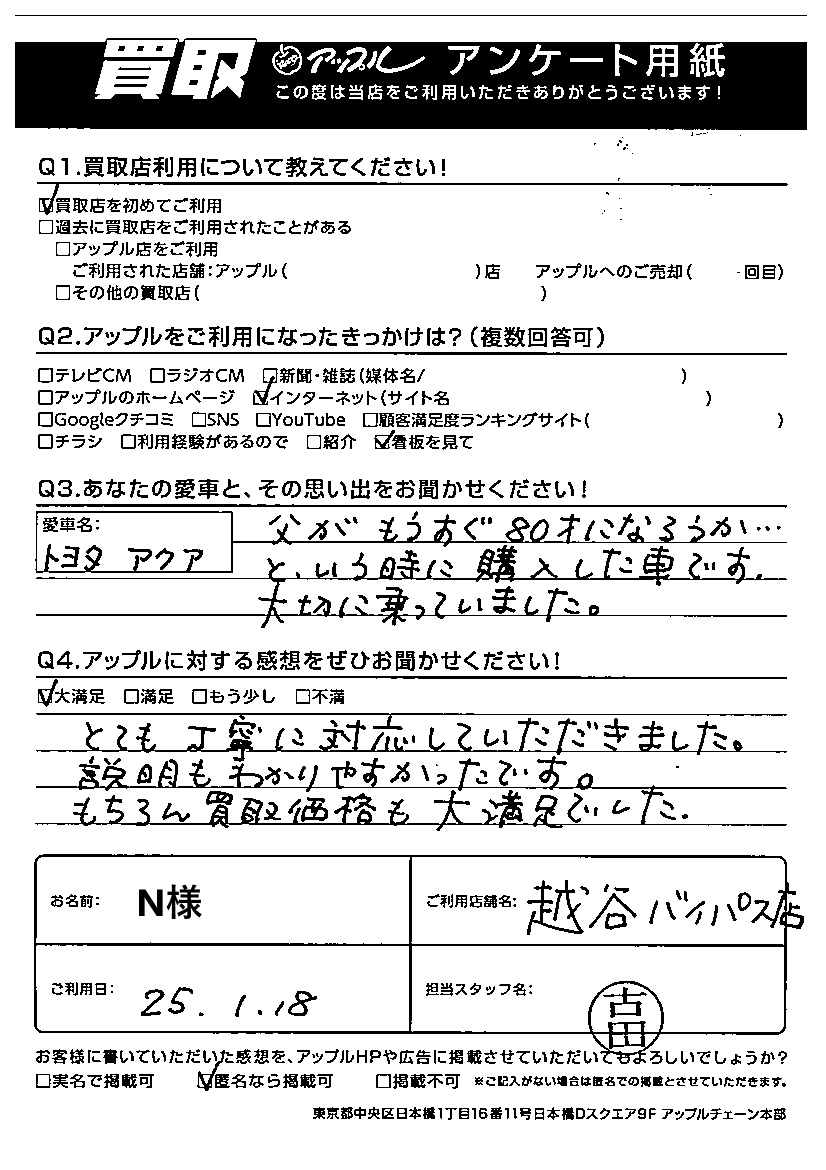 買取 アップル アンケート用紙
この度は当店をご利用いただきありがとうございます!
Q1.買取店利用について教えてください!
☑買取店を初めてご利用
□過去に買取店をご利用されたことがある
□アップル店をご利用
ご利用された店舗:アップル( )店 アップルへのご売却( 回目)
□その他の買取店( )
Q2.アップルをご利用になったきっかけは?(複数回答可)
□テレビCM □ラジオCM □新聞・雑誌(媒体名/ )
□アップルのホームページ ☑インターネット(サイト名 )
□Googleクチコミ □SNS □YouTube □顧客満足度ランキングサイト( )
□チラシ □利用経験があるので □紹介 ☑看板を見て
Q3.あなたの愛車と、その思い出をお聞かせください!
愛車名:
トヨタ アクア
父が もうすぐ 80才になろうか…
と、いう時に購入した車です.
大切に乗っていました。
Q4.アップルに対する感想をぜひお聞かせください!
☑大満足 □満足 □もう少し □不満
とても丁寧に対応していただきました。
説明もわかりやすかったです。
もちろん買取価格も大満足でした.
お名前: N様
ご利用店舗名: 越谷バイパス店
ご利用日: 25.1.18
担当スタッフ名: 吉田
お客様に書いていただいた感想を、アップルHPや広告に掲載させていただいてもよろしいでしょうか?
□実名で掲載可 ☑匿名なら掲載可 □掲載不可 ※ご記入がない場合は匿名での掲載とさせていただきます。
東京都中央区日本橋1丁目16番11号日本橋Dスクエア9F アップルチェーン本部